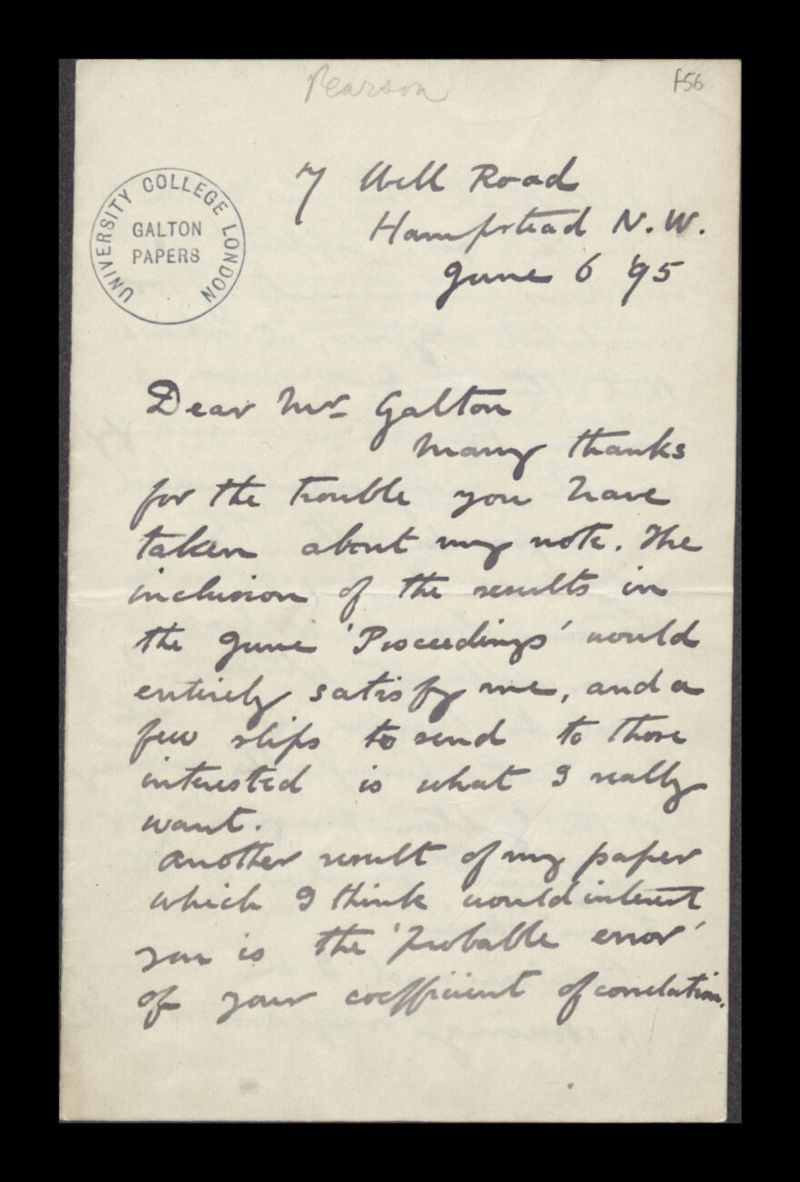 Pearson
f56
UNIVERSITY COLLEGE LONDON
GALTON
PAPERS
7 Well Road
Hampstead N.W.
June 6 '95
Dear Mr Galton
Many thanks
for the trouble you have
taken about my note. The
inclusion of the results in
the June 'Proceedings' would
entirely satisfy me, and a
few slips to send to those
interested is what I really
want.
Another result of my paper
which I think would interest
you is the 'probable error'
of your coefficient of correlation.